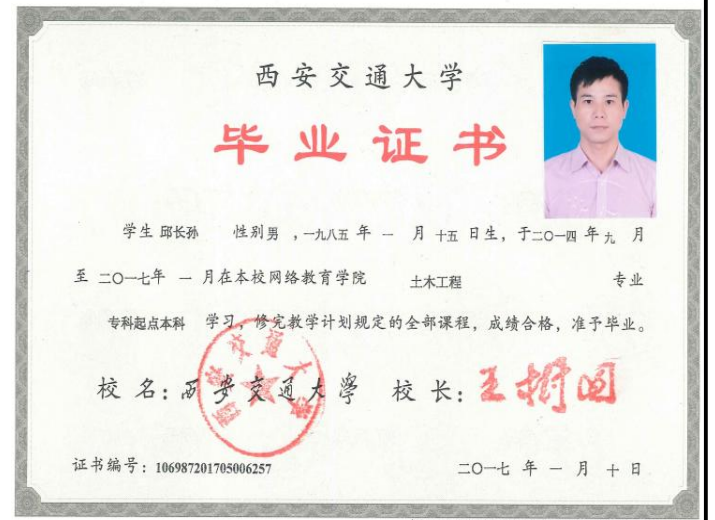 西安交通大学
毕业证书
学生 邱长孙 性别男 ，一九八五 年 一 月 十五 日生，于二〇一四 年 九 月
至 二〇一七年 一 月在本校网络教育学院 土木工程 专业
专科起点本科 学习，修完教学计划规定的全部课程，成绩合格，准予毕业。
校 名：西安交通大學 校 长：王树国
西安交通大学
证书编号：106987201705006257 二〇一七 年 一 月 十 日